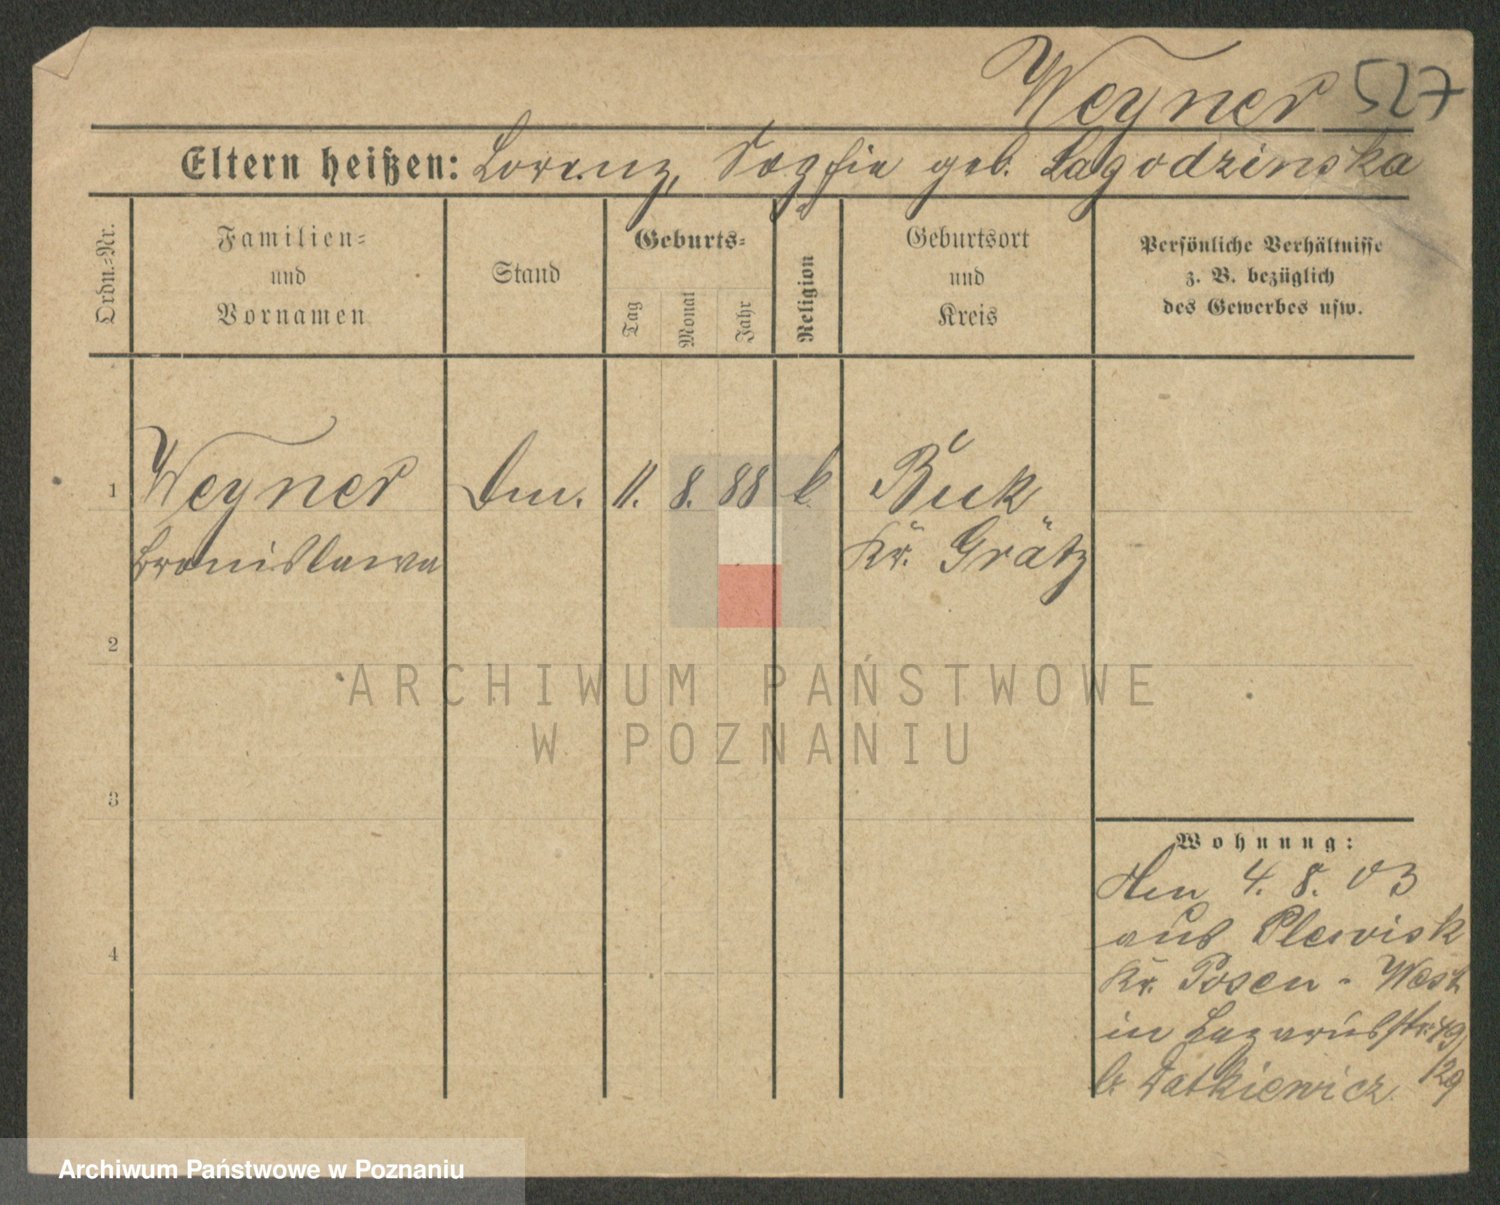 Weyner 527
Eltern heißen: Lorenz, Sophie geb. Lagodzinska
Ordn.-Nr.
Familien-
und
Vornamen
Stand
Geburts-
Tag
Monat
Jahr
Religion
Geburtsort
und
Kreis
Persönliche Verhältnisse
z. B. bezüglich
des Gewerbes usw.
1 Weyner 11. 8. 88 k Buk
Bronislawa Kr. Grätz
2
ARCHIWUM PAŃSTWOWE
W POZNANIU
3
Wohnung:
4. 8. 03
aus Plewisk
4
Kr. Posen-West
in Lazarusstr. 49/
b. Ratkiewicz /29
Archiwum Państwowe w Poznaniu